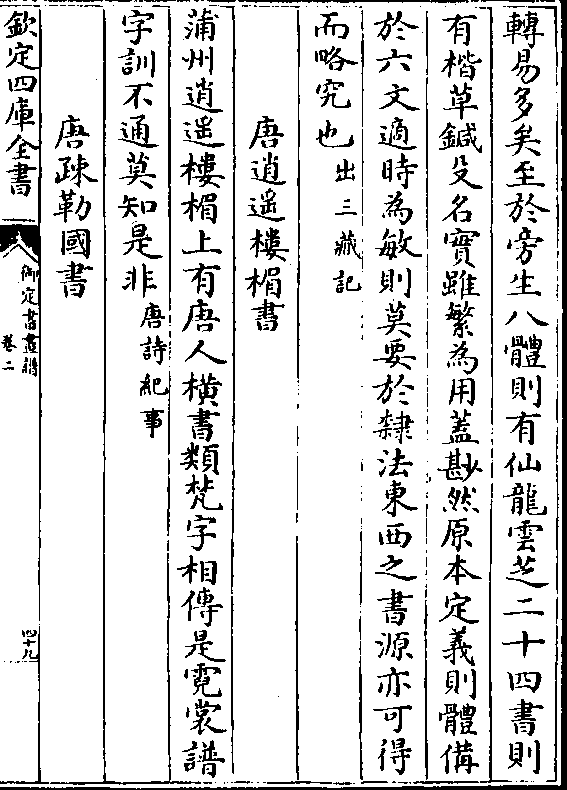 轉易多矣至於旁生八體則有仙龍雲芝二十四書則
有楷草鍼殳名實雖繁為用蓋尠然原本定義則體備
於六文適時為敏則莫要於隸法東西之書源亦可得
而略究也出三藏記
唐逍遥樓楣書
蒲州逍遥樓楣上有唐人橫書類梵字相傳是霓裳譜
字訓不通莫知是非唐詩紀事
唐疎勒國書
欽定四庫全書
御定書畫譜
卷二
四十九